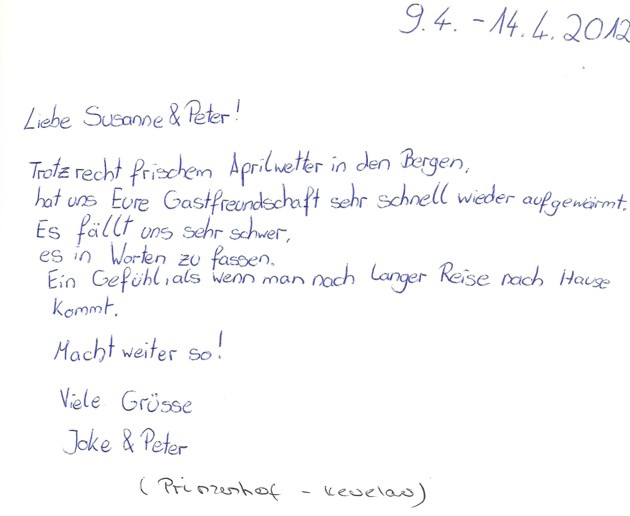 9.4. - 14.4. 2012
Liebe Susanne & Peter!
Trotz recht frischem Aprilwetter in den Bergen,
hat uns Eure Gastfreundschaft sehr schnell wieder aufgewärmt.
Es fällt uns sehr schwer,
es in Worten zu fassen.
Ein Gefühl, als wenn man nach langer Reise nach Hause
kommt.
Macht weiter so!
Viele Grüsse
Joke & Peter
(Prinzenhof - Kevelaer)